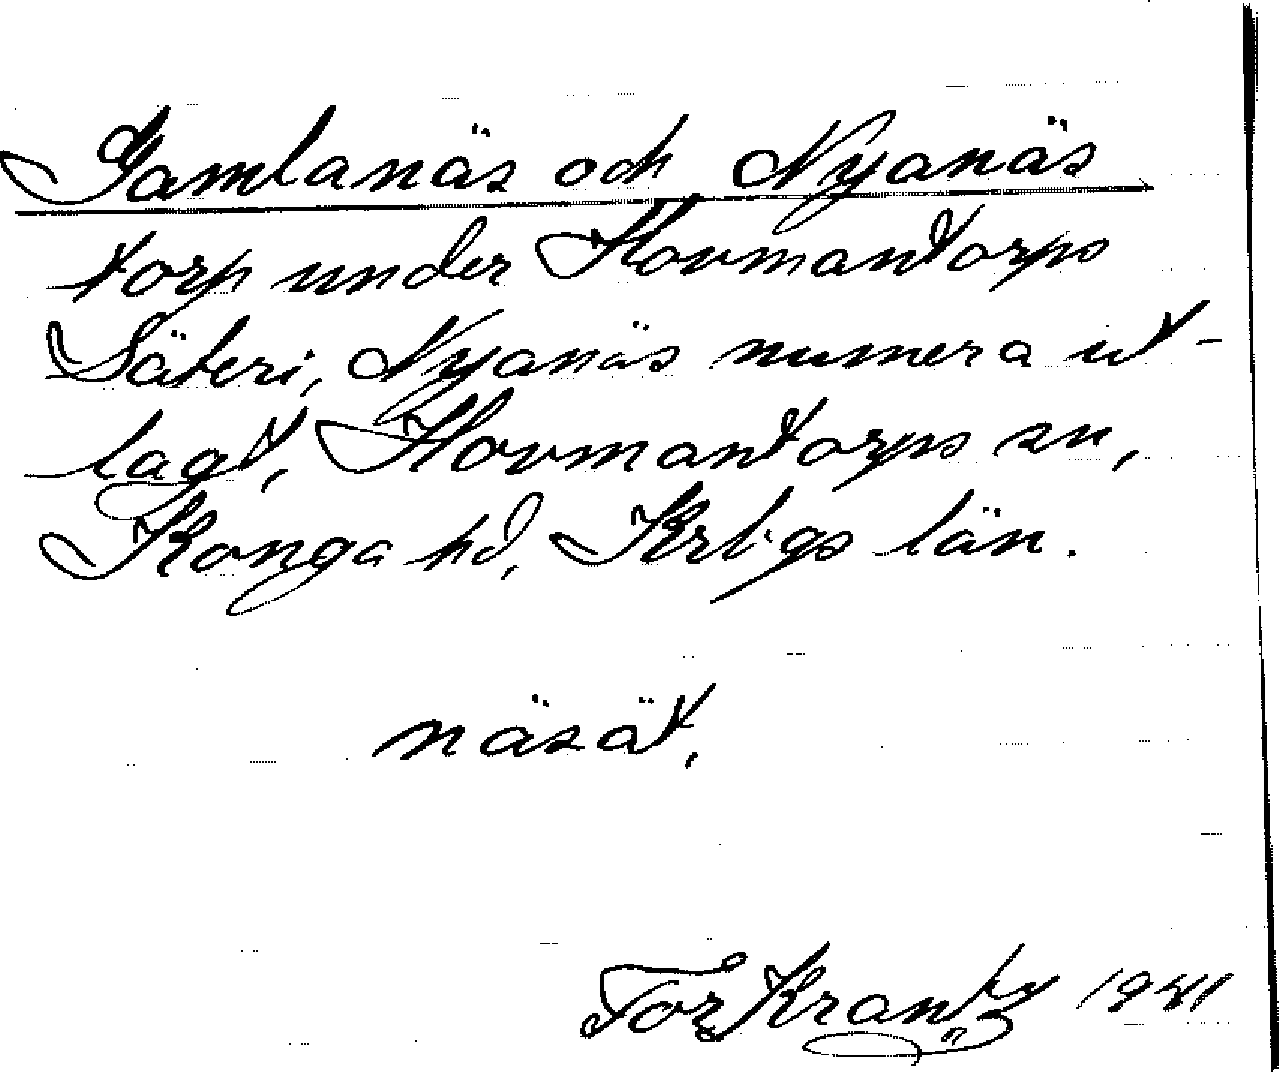 Gamlanäs och Nyanäs
torp under Hovmantorps
Säteri, Nyanäs numera ut-
lagt, Hovmantorps sn,
Konga hd, Krbgs län.
näsät,
Tor Krantz 1941